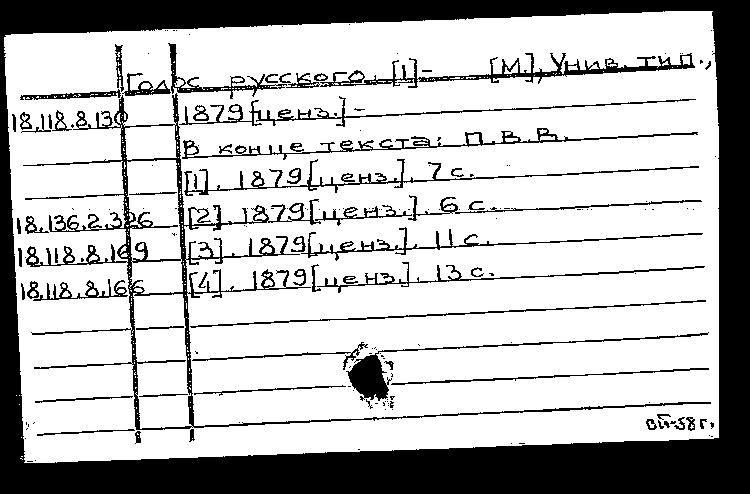 Голос русского. [1]- [М.], Унив. тип.,
18.118.8.130 1879[ценз.]-
В конце текста: П.В.В.
[1]. 1879[ценз.]. 7 с.
18.136.2.326 [2]. 1879[ценз.]. 6 с.
18.118.8.169 [3]. 1879[ценз.]. 11 с.
18.118.8.166 [4]. 1879[ценз.]. 13 с.